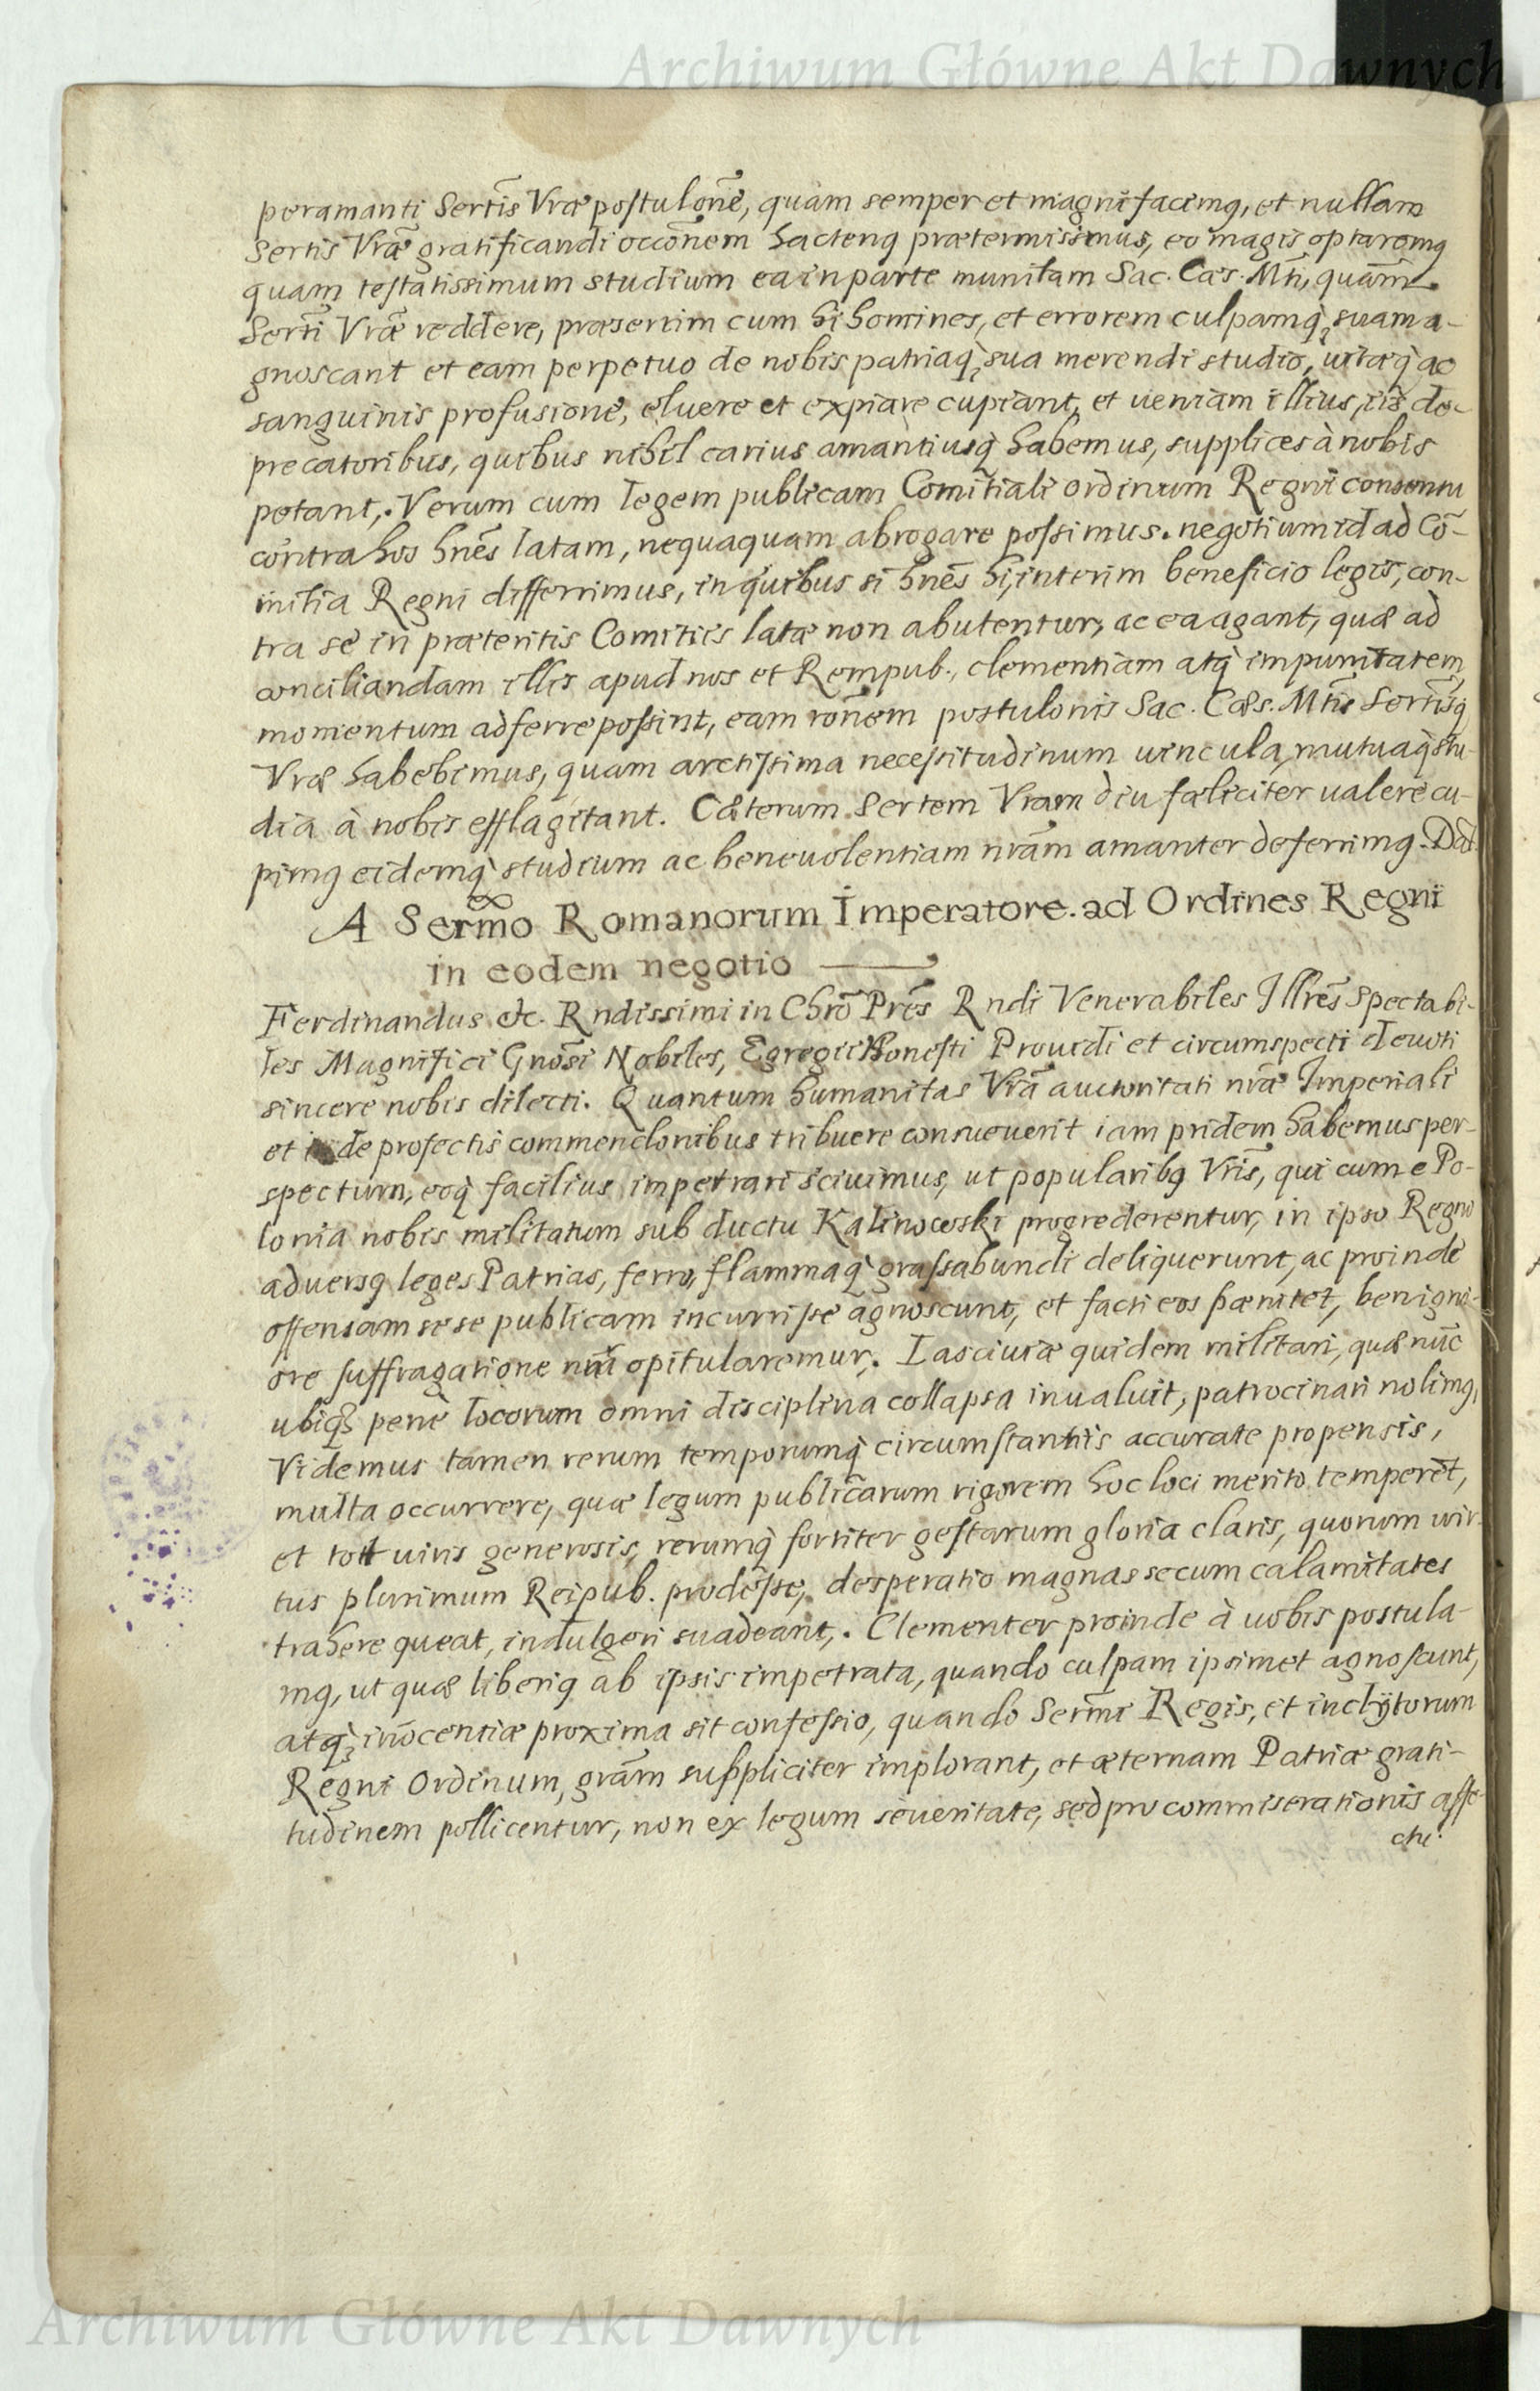 Archiwum Główne Akt Dawnych
peramanti Sertis Vrae postulone, quam semper et magni facimq, et nullam
Sertis Vrae gratificandi occonem hactenq praetermisimus, eo magis optaremq
quam testatissimum studium ea in parte munitam Sac. Caes. Mti, quam
Serti Vrae reddere, praesertim cum hi homines, et errorem culpamq suam a-
gnoscant et eam perpetuo de nobis patriaq sua merendi studio, vitaeq ac
sanguinis profusione, eluere et expiare cupiant, et ueniam illius, iis de-
precatoribus, quibus nihil carius amantiusq habemus, supplices à nobis
petant,. Verum cum legem publicam Comitiali ordinum Regni consensu
contra hos hnes latam, nequaquam abrogare possimus. negotium id ad Co-
mitia Regni differrimus, in quibus si hnes hi, interim beneficio legis, con-
tra se in praeteritis Comitiis latae non abutentur, ac ea agant, quae ad
conciliandam illis apud nos et Rempub., clementiam atq impunitatem,
momentum adferre possint, eam ronem postulonis Sac. Caes. Mtis Sertisq
Vrae habebimus, quam arctissima necessitudinum uincula, mutuaq stu-
dia à nobis efflagitant. Caeterum Sertem Vram diu faeliciter ualere cu-
pimq eidemq studium ac beneuolentiam nram amanter deferrimq. Dat
A Sermo Romanorum Imperatore. ad Ordines Regni
in eodem negotio
Ferdinandus etc. Rndissimi in Chro Pres Rndi Venerabiles Illres Spectabi-
les Magnifici Gnosi Nobiles, Egregii Honesti Prouidi et circumspecti deuoti
sincere nobis dilecti. Quantum humanitas Vra auctoritati nrae Imperiali
et inde profectis commendonibus tribuere consueuerit iam pridem habemus per-
spectum, eoq facilius impetrari sciuimus, ut popularibq Vris, qui cum e Po-
lonia nobis militatum sub ductu Kalinowski progrederentur, in ipso Regno
aduersq leges Patrias, ferro, flammaq grassabundi deliquerunt, ac proinde
offensam sese publicam incurrisse agnoscunt, et facti eos paenitet, benigni-
ore suffragatione nra opitularemur. Lasciuiae quidem militari, quae nuc
ubiq pene locorum omni disciplina collapsa inualuit, patrocinari nolimq,
Videmus tamen rerum temporumq circumstantiis accurate propensis,
multa occurrere, quae legum publicarum rigorem hoc loci merito temperet,
et tot uiris generosis, rerumq fortiter gestarum gloria claris, quorum uir-
tus plurimum Reipub. prodesse, desperatio magnas secum calamitates
trahere queat, indulgeri suadeant,. Clementer proinde à uobis postula-
mq, ut quae liberiq ab ipsis impetrata, quando culpam ipsimet agnoscunt,
atq, inocentiae proxima sit confessio, quando Sermi Regis, et inclytorum
Regni Ordinum, gram suppliciter implorant, et aeternam Patriae grati-
tudinem pollicentur, non ex legum seueritate, sed pro commiserationis affe-
ctu
Archiwum Główne Akt Dawnych